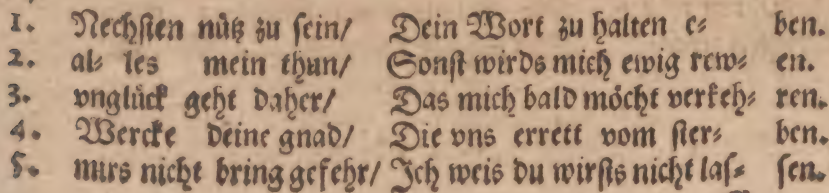 1. Nechsten nütz zu sein/ Dein Wort zu halten e⸗ ben.
2. al⸗ les mein thun/ Sonst wirds mich ewig rew⸗ en.
3. vnglück geht daher/ Das mich bald möcht verkeh⸗ ren.
4. Wercke deine gnad/ Die vns errett vom ster⸗ ben.
5. mirs nicht bring gefehr/ Ich weis du wirsts nicht las⸗ sen.